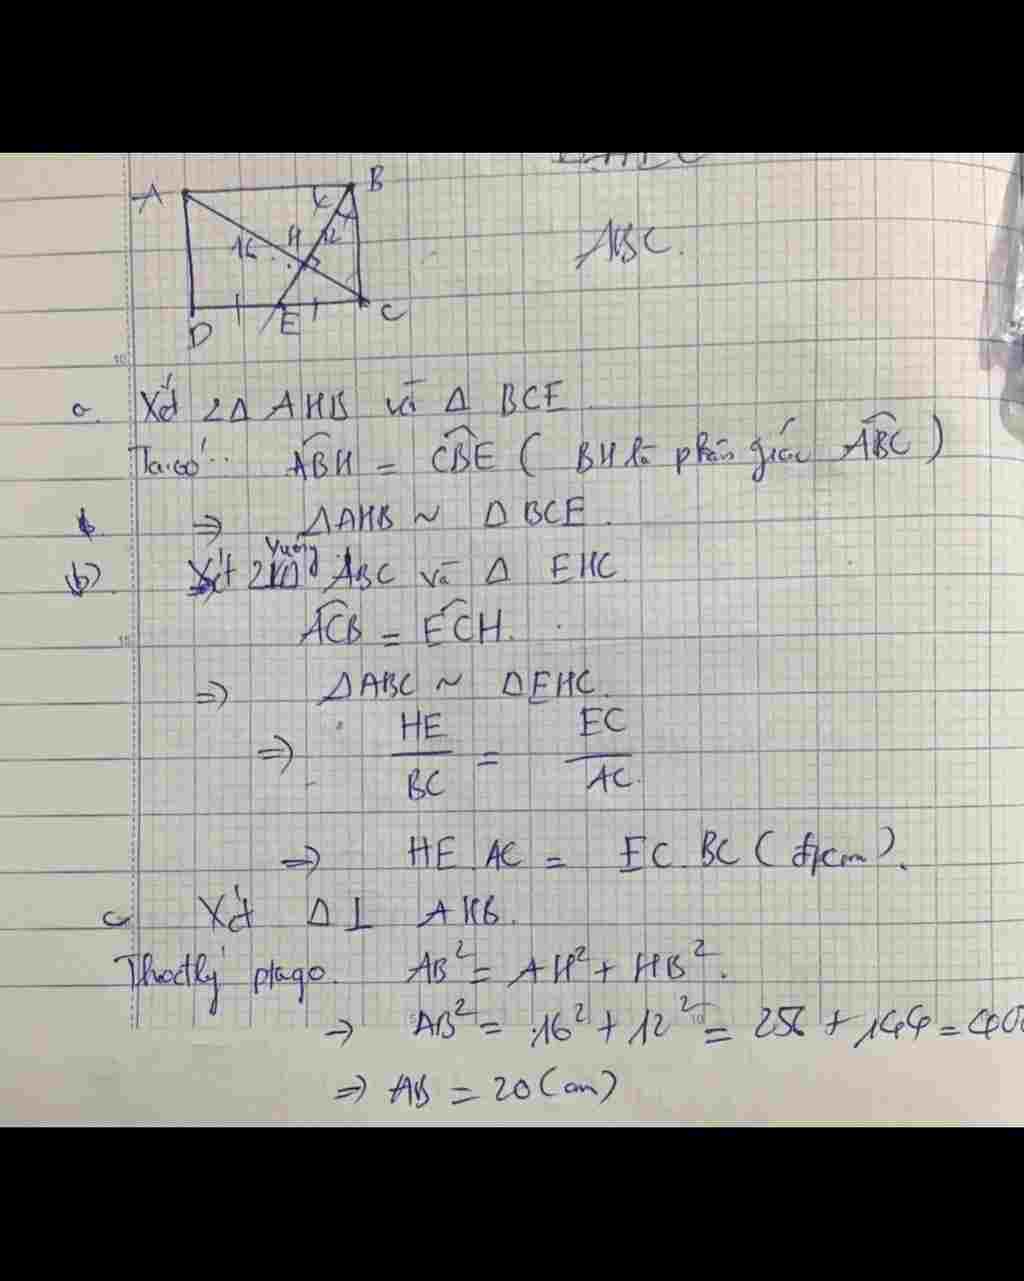 A B
16 H 12
D E C
ABC.
a. Xét 2Δ AHB và Δ BCE
Ta có: ABH = CBE ( BH là phân giác ABC )
⇒ ΔAHB ~ ΔBCE.
b) Xét 2Δ vuông ABC và Δ EHC
ACB = ECH.
⇒ ΔABC ~ ΔEHC.
⇒ HE/BC = EC/AC.
⇒ HE.AC = EC.BC ( đpcm ).
c Xét Δ⊥ AHB.
ptago. AB² = AH² + HB².
⇒ AB² = 16² + 12² = 256 + 144 = 400
⇒ AB = 20 (cm)